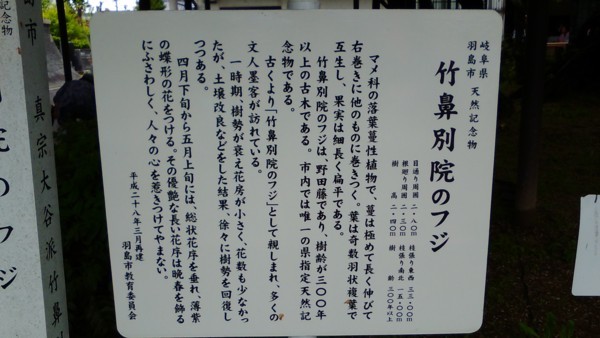 岐阜県
羽島市 天然記念物
竹鼻別院のフジ
目通り周囲 二・八〇m 枝張り東西 三三・〇〇m
根廻り周囲 二・三〇m 枝張り南北 一五・〇〇m
樹 高 二・四〇m 樹 齢 三〇〇年以上
マメ科の落葉蔓性植物で、蔓は極めて長く伸びて
右巻きに他のものに巻きつく。葉は奇数羽状複葉で
互生し、果実は細長く扁平である。
竹鼻別院のフジは、野田藤であり、樹齢が三〇〇年
以上の古木である。市内では唯一の県指定天然記
念物である。
古くより「竹鼻別院のフジ」として親しまれ、多くの
文人墨客が訪れている。
一時期、樹勢が衰え花房が小さく、花数も少なかっ
たが、土壌改良などをした結果、徐々に樹勢を回復し
つつある。
四月下旬から五月上旬には、総状花序を垂れ、薄紫
の蝶形の花をつける。その優艶な長い花序は晩春を飾る
にふさわしく、人々の心を惹きつけてやまない。
平成二十八年三月再建
羽島市教育委員会
真宗大谷派竹鼻
島市
記念物
院のフジ